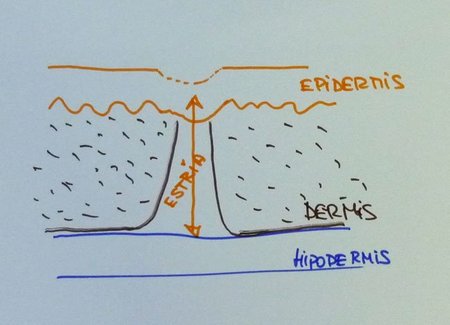 EPIDERMIS
ESTRÍA
DERMIS
HIPODERMIS